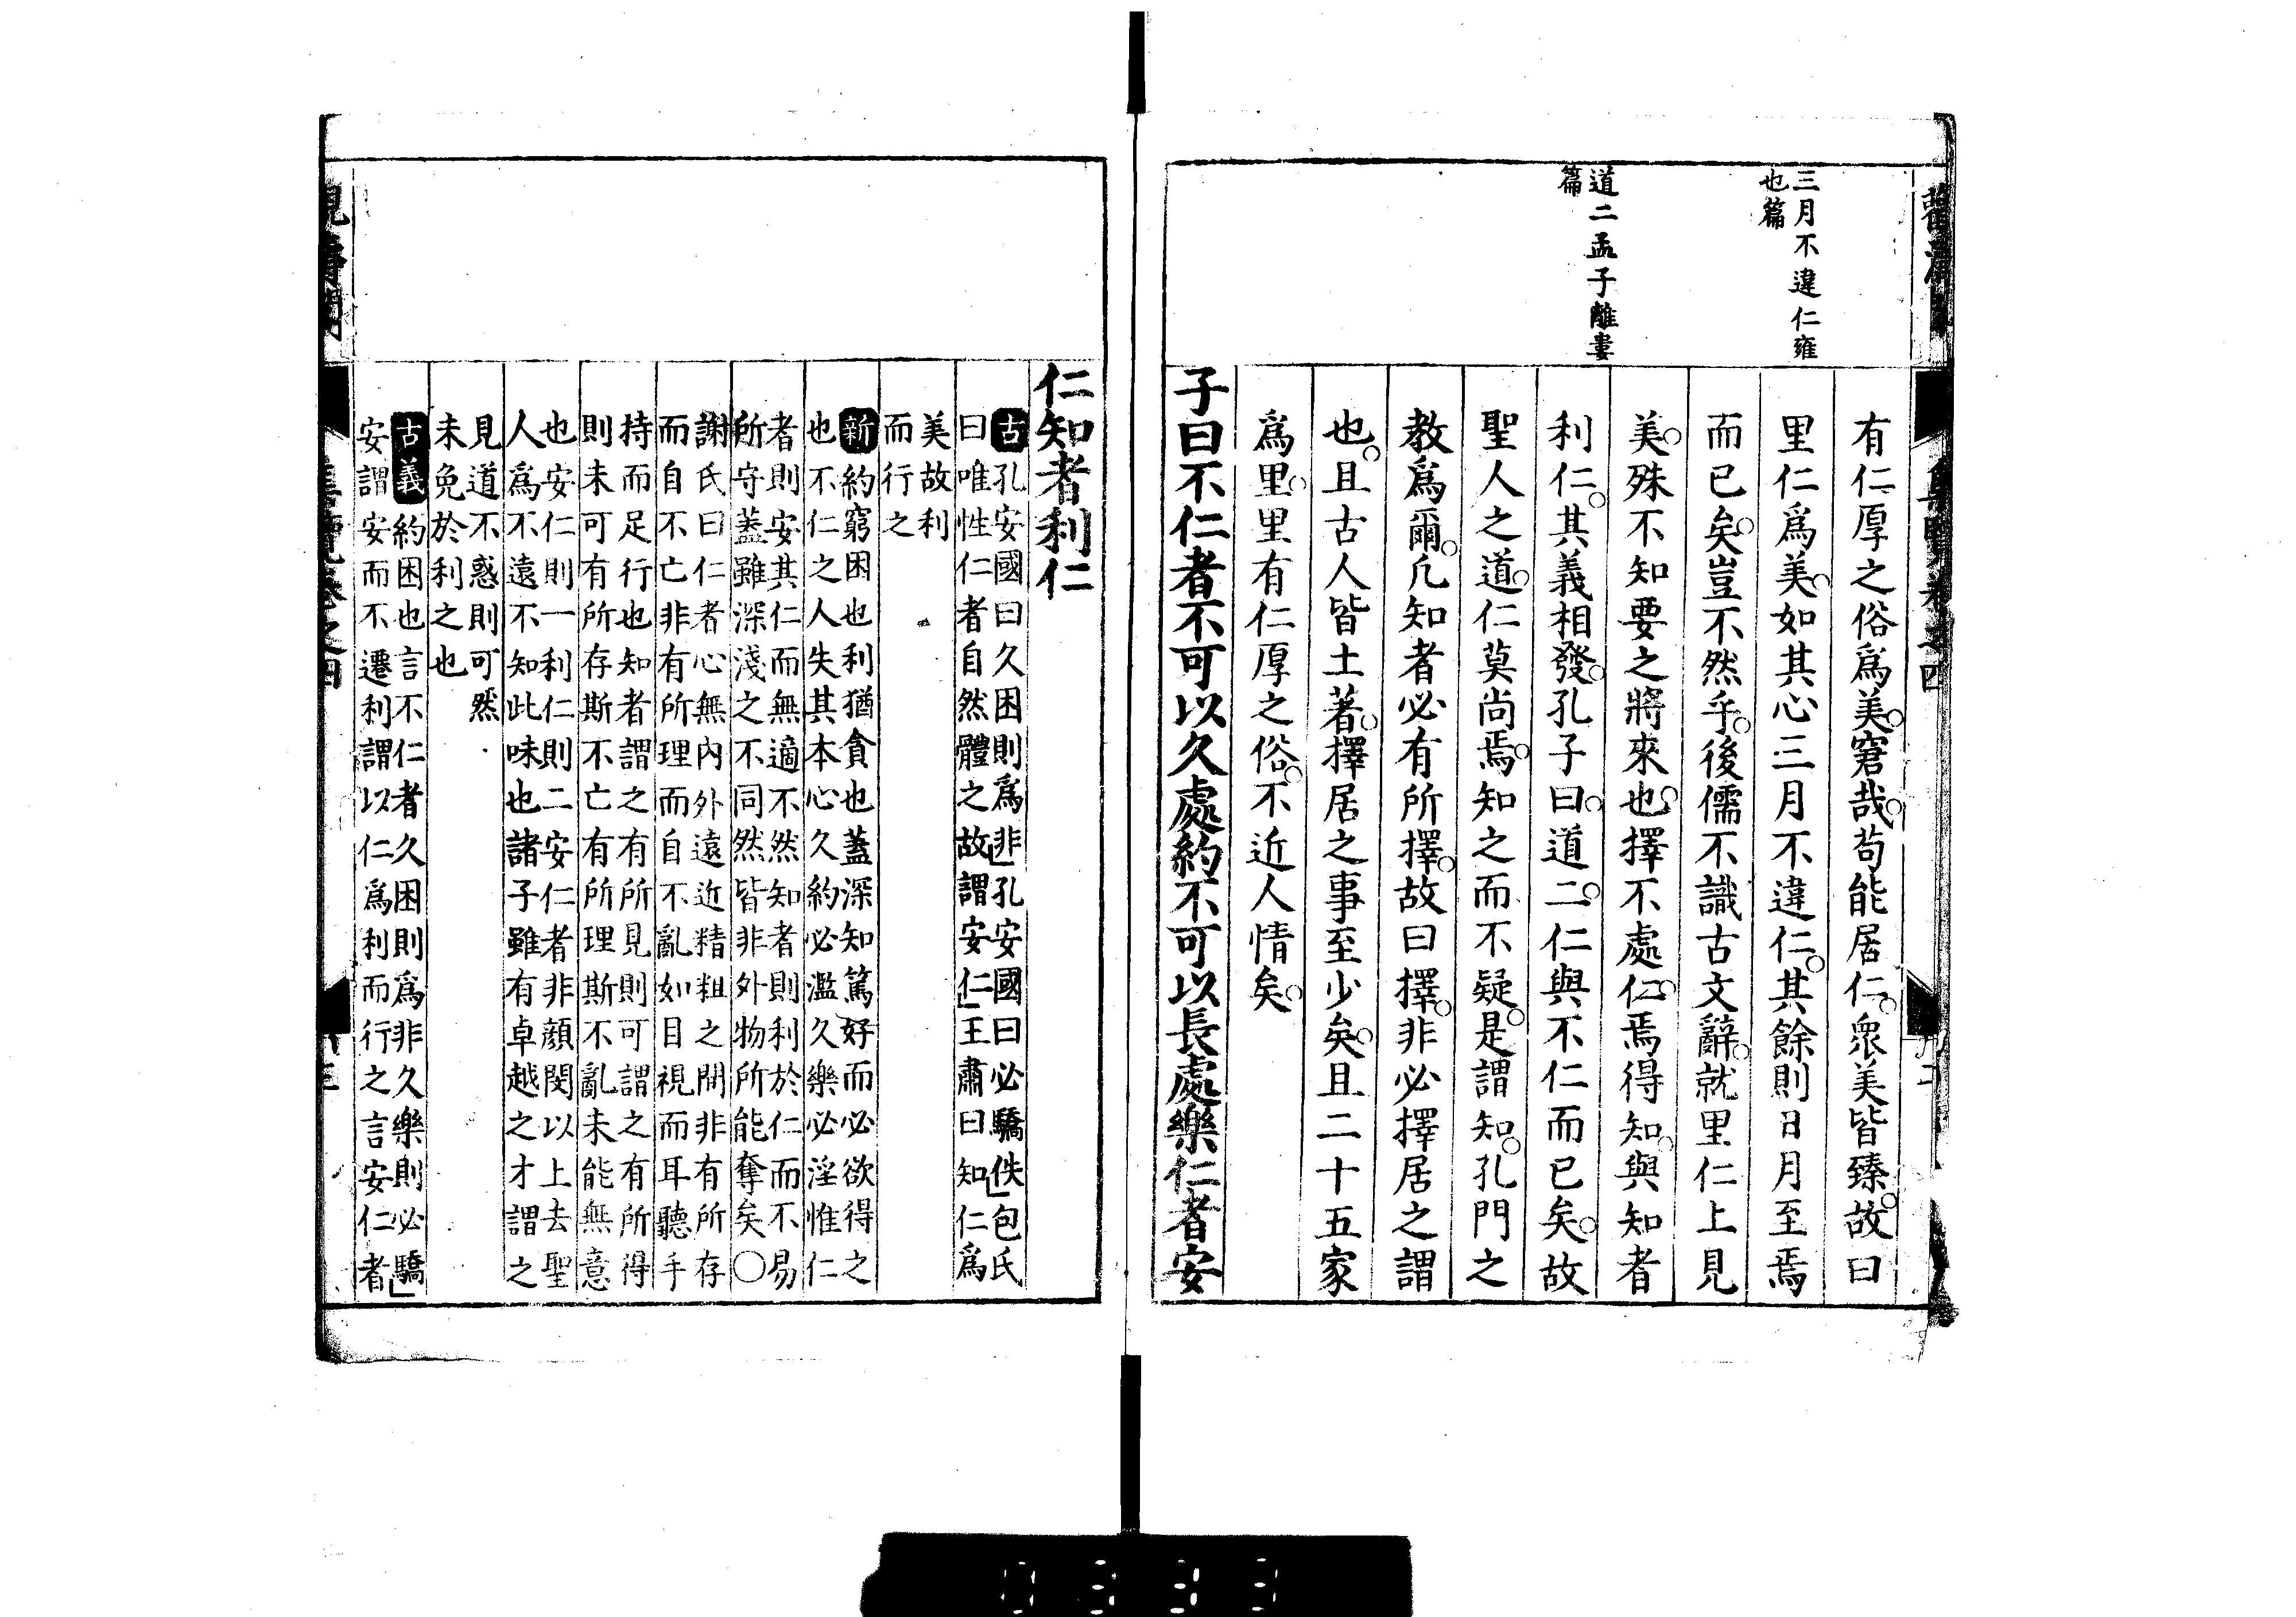 三月不違仁雍
也篇
道二孟子離婁
篇
有仁厚之俗爲美窘哉苟能居仁衆美皆臻故曰
里仁爲美如其心三月不違仁其餘則日月至焉
而已矣豈不然乎後儒不識古文辭就里仁上見
美殊不知要之將來也擇不處仁焉得知與知者
利仁其義相發孔子曰道二仁與不仁而已矣故
聖人之道仁莫尚焉知之而不疑是謂知孔門之
教爲爾凡知者必有所擇故曰擇非必擇居之謂
也且古人皆土著擇居之事至少矣且二十五家
爲里里有仁厚之俗不近人情矣
子曰不仁者不可以久處約不可以長處樂仁者安
仁知者利仁
古孔安國曰久困則爲非孔安國曰必驕佚包氏
曰唯性仁者自然體之故謂安仁王肅曰知仁爲
美故利
而行之
新約窮困也利猶貪也蓋深知篤好而必欲得之
也不仁之人失其本心久約必濫久樂必淫惟仁
者則安其仁而無適不然知者則利於仁而不易
所守蓋雖深淺之不同然皆非外物所能奪矣〇
謝氏曰仁者心無内外遠近精粗之間非有所存
而自不亡非有所理而自不亂如目視而耳聽手
持而足行也知者謂之有所見則可謂之有所得
則未可有所存斯不亡有所理斯不亂未能無意
也安仁則一利仁則二安仁者非顔閔以上去聖
人爲不遠不知此味也諸子雖有卓越之才謂之
見道不惑則可然
未免於利之也
古義約困也言不仁者久困則爲非久樂則必驕
安謂安而不遷利謂以仁爲利而行之言安仁者